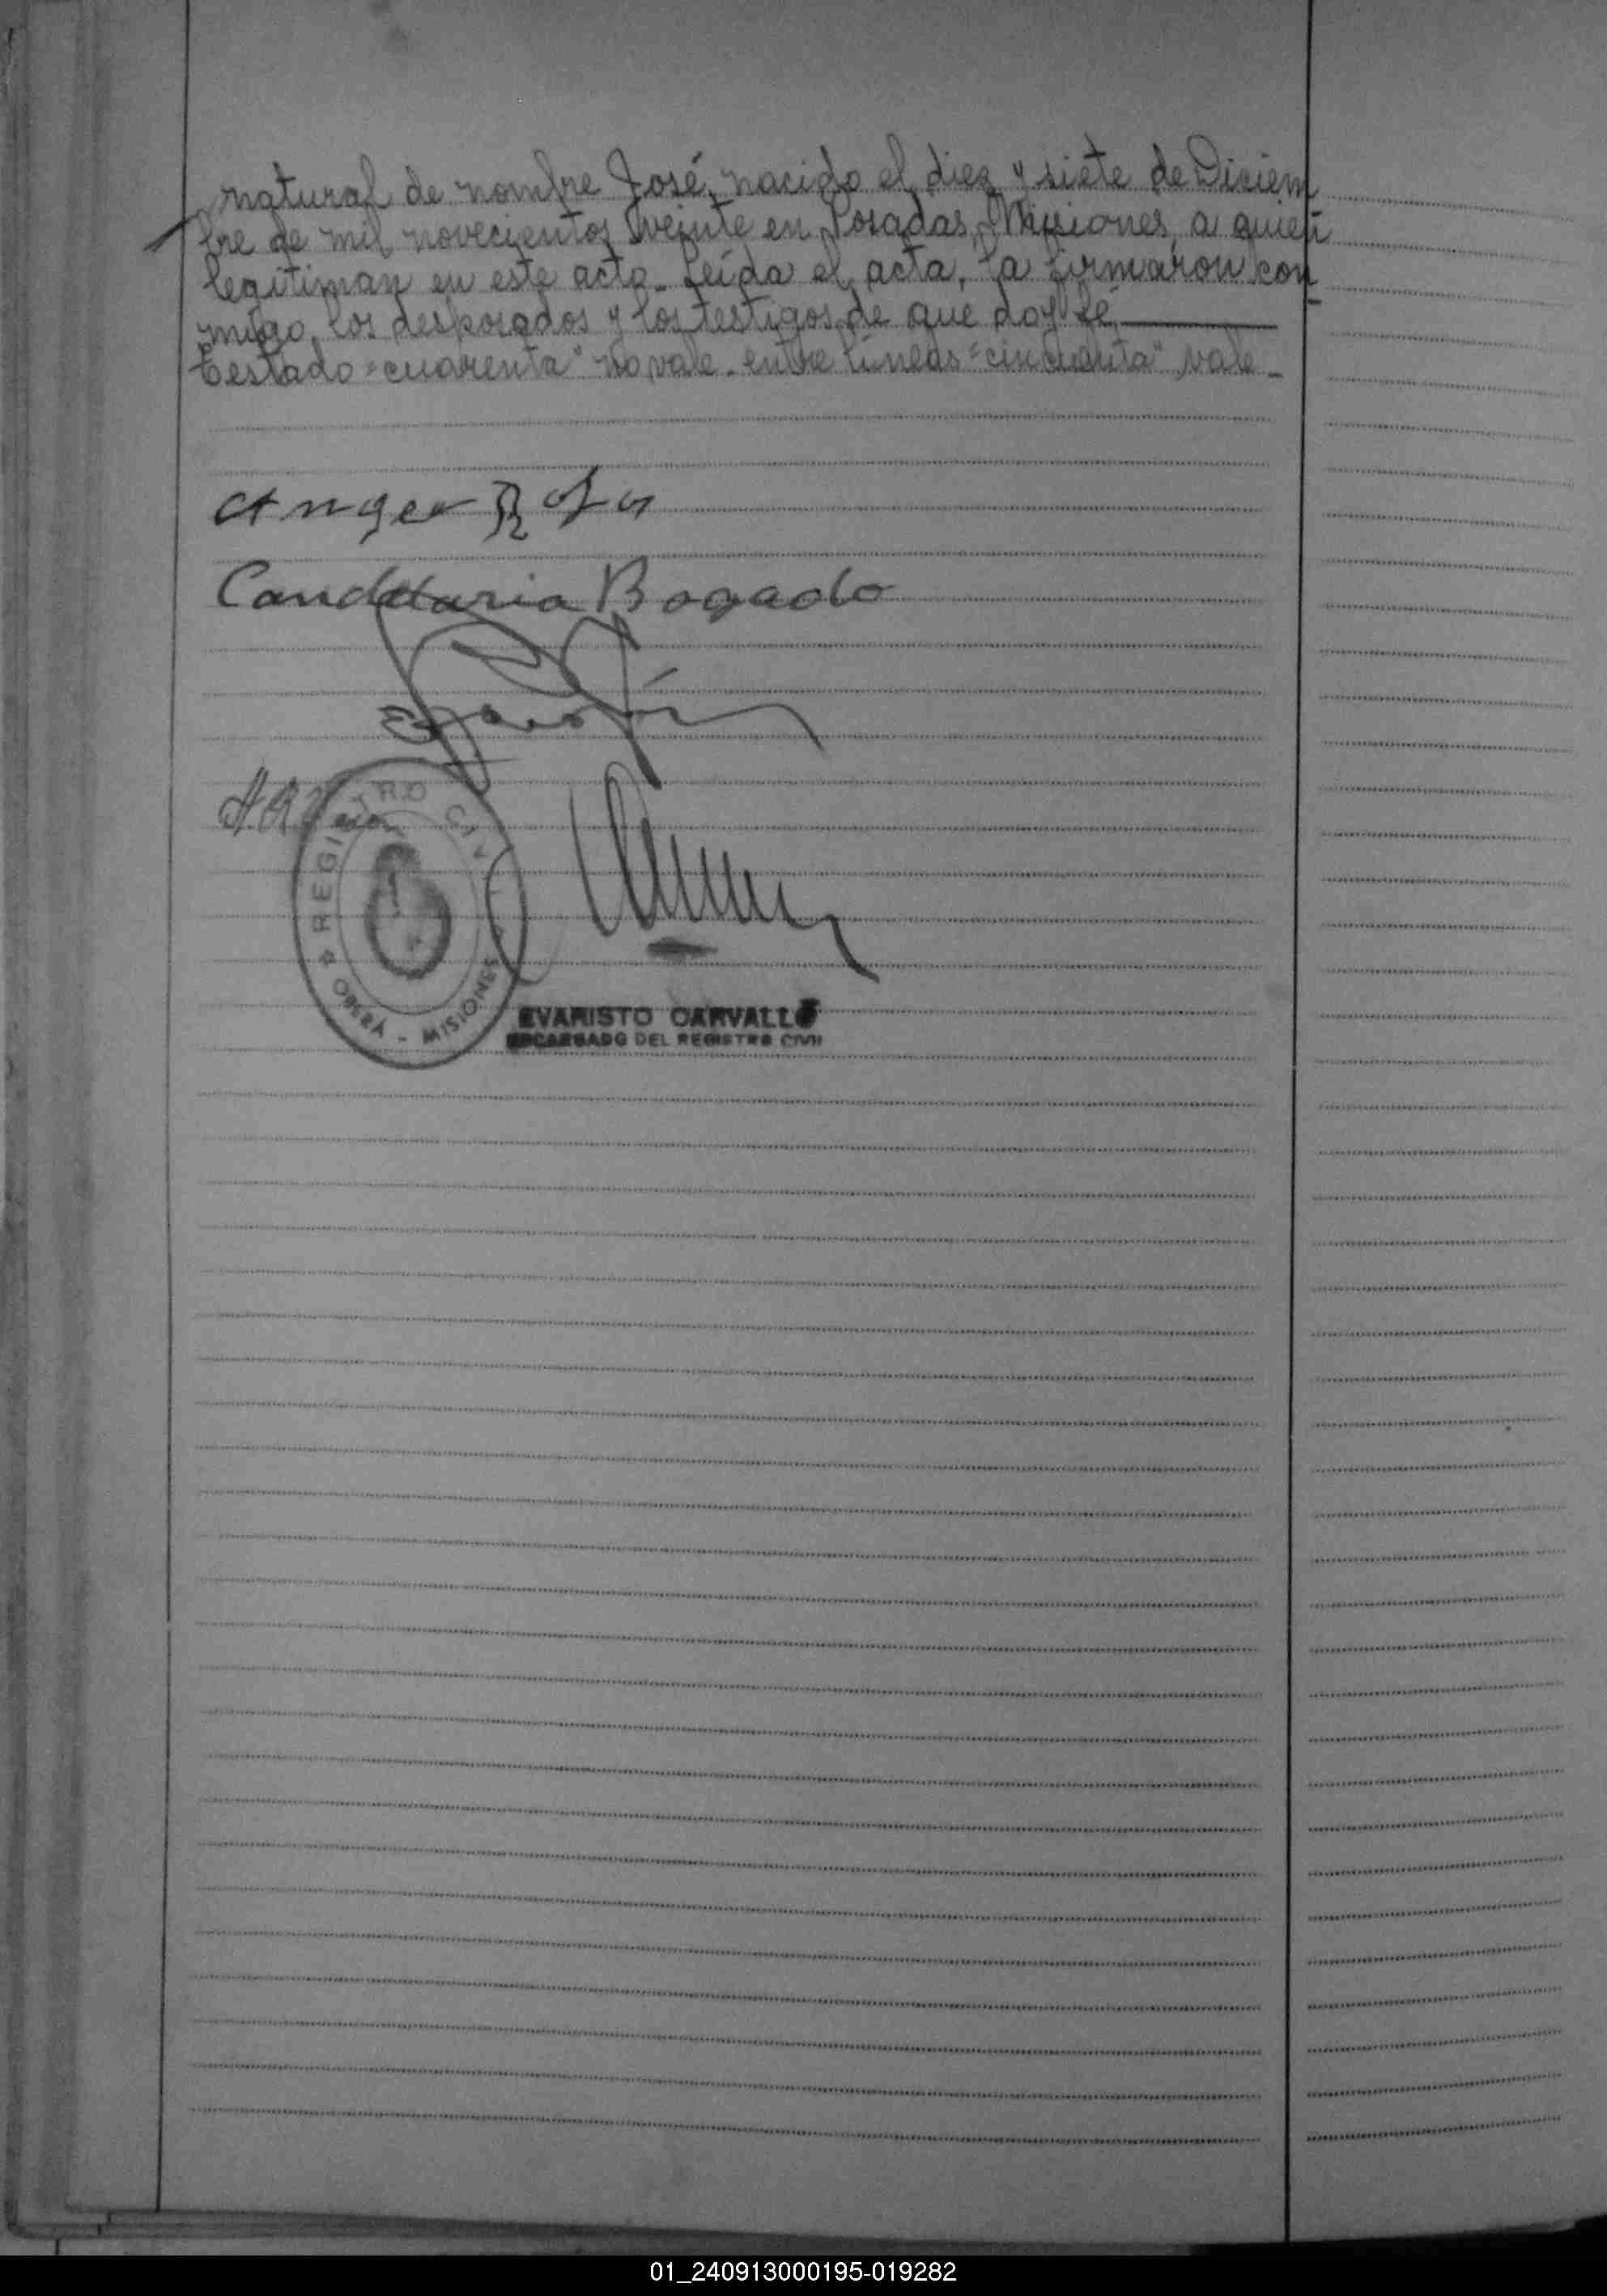 natural de nombre José, nacido el diez y siete de Diciem
bre de mil novecientos veinte en Posadas, Misiones, a quien
legitiman en este acto. Leída el acta, la firmaron con
migo, los desposados y los testigos de que doy fé
Testado "cuarenta" no vale. entre líneas "cincuenta" vale.
Candelaria Bogado
REGISTRO CIVIL
OBERÁ - MISIONES
EVARISTO CARVALLO
ENCARGADO DEL REGISTRO CIVIL
01_240913000195-019282